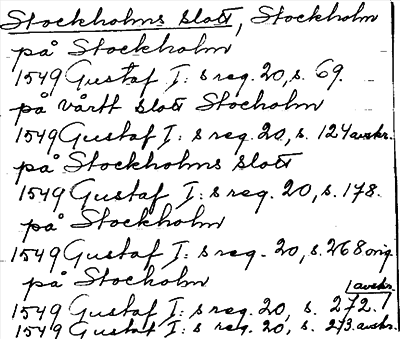 Stockholms slott, Stockholm
på Stockholm
1549 Gustaf I:s reg. 20, s. 69.
på vårtt slott Stocholm
1549 Gustaf I:s reg. 20, s. 124 avskr.
på Stockholms slott
1549 Gustaf I:s reg. 20, s. 178.
på Stockholm
1549 Gustaf I:s reg. 20, s. 268 orig.
på Stockholm
1549 Gustaf I:s reg. 20, s. 272. avskr.
1549 Gustaf I:s reg. 20, s. 273. avskr.